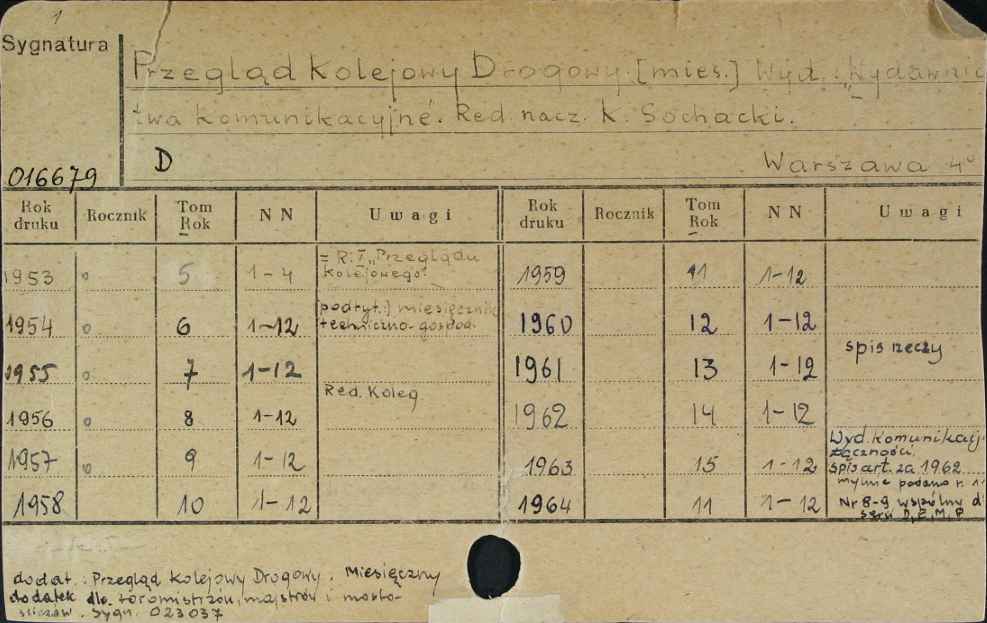 1
Sygnatura
Przegląd Kolejowy Drogowy. [mies.] Wyd.: "Wydawnic
twa Komunikacyjne". Red. nacz. K. Sochacki.
016679 D Warszawa 4°
Rok druku Rocznik Tom Rok N N Uwagi Rok druku Rocznik Tom Rok N N Uwagi
1953 o 5 1-4 = R. I "Przeglądu Kolejowego" 1959 11 1-12
1954 o 6 1-12 [podtyt.] miesięcznik techniczno-gospod. 1960 12 1-12
1955 o 7 1-12 1961 13 1-12 spis rzeczy
1956 o 8 1-12 Red. Koleg 1962 14 1-12
1957 o 9 1-12 1963 15 1-12 Wyd. Komunikacji łączności. spis art. za 1962
1958 10 1-12 1964 11 1-12 mylnie podano r. 11 Nr 8-9 wspólny d serii D, E, M, P
dodat.: Przegląd Kolejowy Drogowy. Miesięczny
dodatek dla toromistrzów, majstrów i mosto-
Sygn. 023037